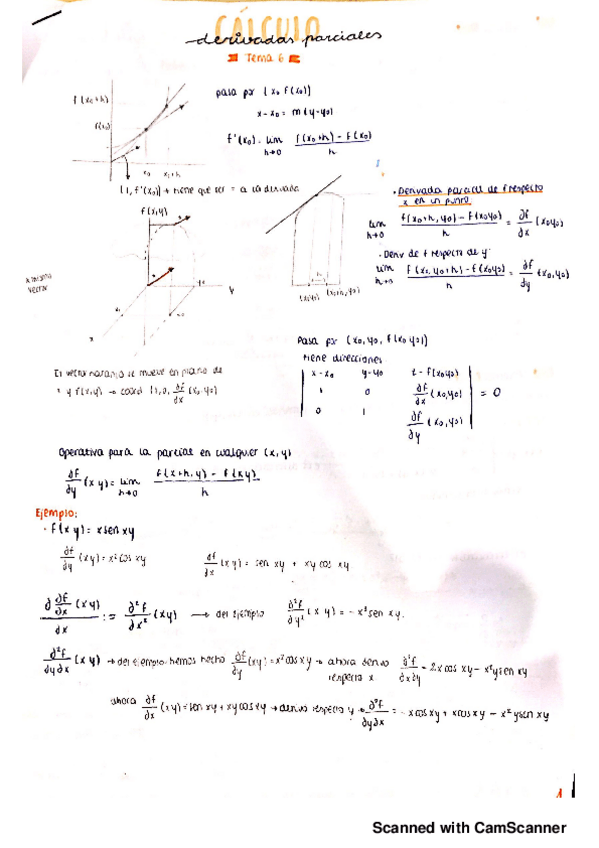 CÁLCULO
derivadas parciales
Tema 6
f(x0+h)
f(x0)
x0 x1+h
pasa por (x0 f(x0))
x-x0 = m(y-y0)
f'(x0) = lim h→0 f(x0+h) - f(x0) / h
(1, f'(x0)) → tiene que ser = a la derivada
· Derivada parcial de f respecto
x en un punto
lim h→0 f(x0+h, y0) - f(x0y0) / h = ∂f/∂x (x0y0)
· Deriv de f respecto de y
lim h→0 f(x0, y0+h) - f(x0y0) / h = ∂f/∂y (x0,y0)
f(x,y)
x mismo
vector
x
y
y0
(x0y0) (x0+h, y0)
El vector naranja se mueve en plano de
y f(x,y) → coord (1,0, ∂f/∂x (x0 y0)
Pasa por (x0, y0, f(x0y0))
tiene direcciones
x-x0 y-y0 z-f(x0y0)
1 0 ∂f/∂x (x0,y0) = 0
0 1 ∂f/∂y (x0,y0)
Operativa para la parcial en cualquier (x,y)
∂f/∂y (x y) = lim h→0 f(x+h, y) - f(x y) / h
Ejemplo:
· f(x y) = x sen xy
∂f/∂y (x y) = x² cos xy ∂f/∂x (x y) = sen xy + xy cos xy
∂ ∂f/∂x (x y) / ∂x := ∂²f/∂x² (x y) → del ejemplo ∂²f/∂y² (x y) = -x³ sen xy.
∂²f/∂y∂x (x y) → del ejemplo hemos hecho ∂f/∂y (x y) = x² cos xy → ahora derivo respecto x ∂²f/∂x∂y = 2x cos xy - x²y sen xy
ahora ∂f/∂x (x y) = sen xy + xy cos xy → derivo respecto y → ∂²f/∂y∂x = x cos xy + x cos xy - x² y sen xy
1
Scanned with CamScanner